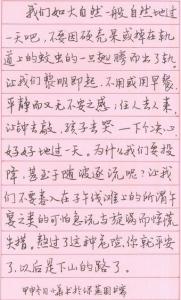 我们如大自然一般自然地过
一天吧,不要因硬壳果或掉在轨
道上的蚊虫的一只翅膀而出了轨。
让我们黎明即起,不用或用早餐,
平静而又无不安之感;任人去人来,
让钟去敲,孩子去哭 — 下个决心
好好地过一天。为什么我们要投
降,甚至于随波逐流呢?让我
们不要卷入在子午线滩上的所谓午
宴之类的可怕急流与旋涡而惊慌
失措。熬过了这种危险,你就平安
了,以后是下山的路了。